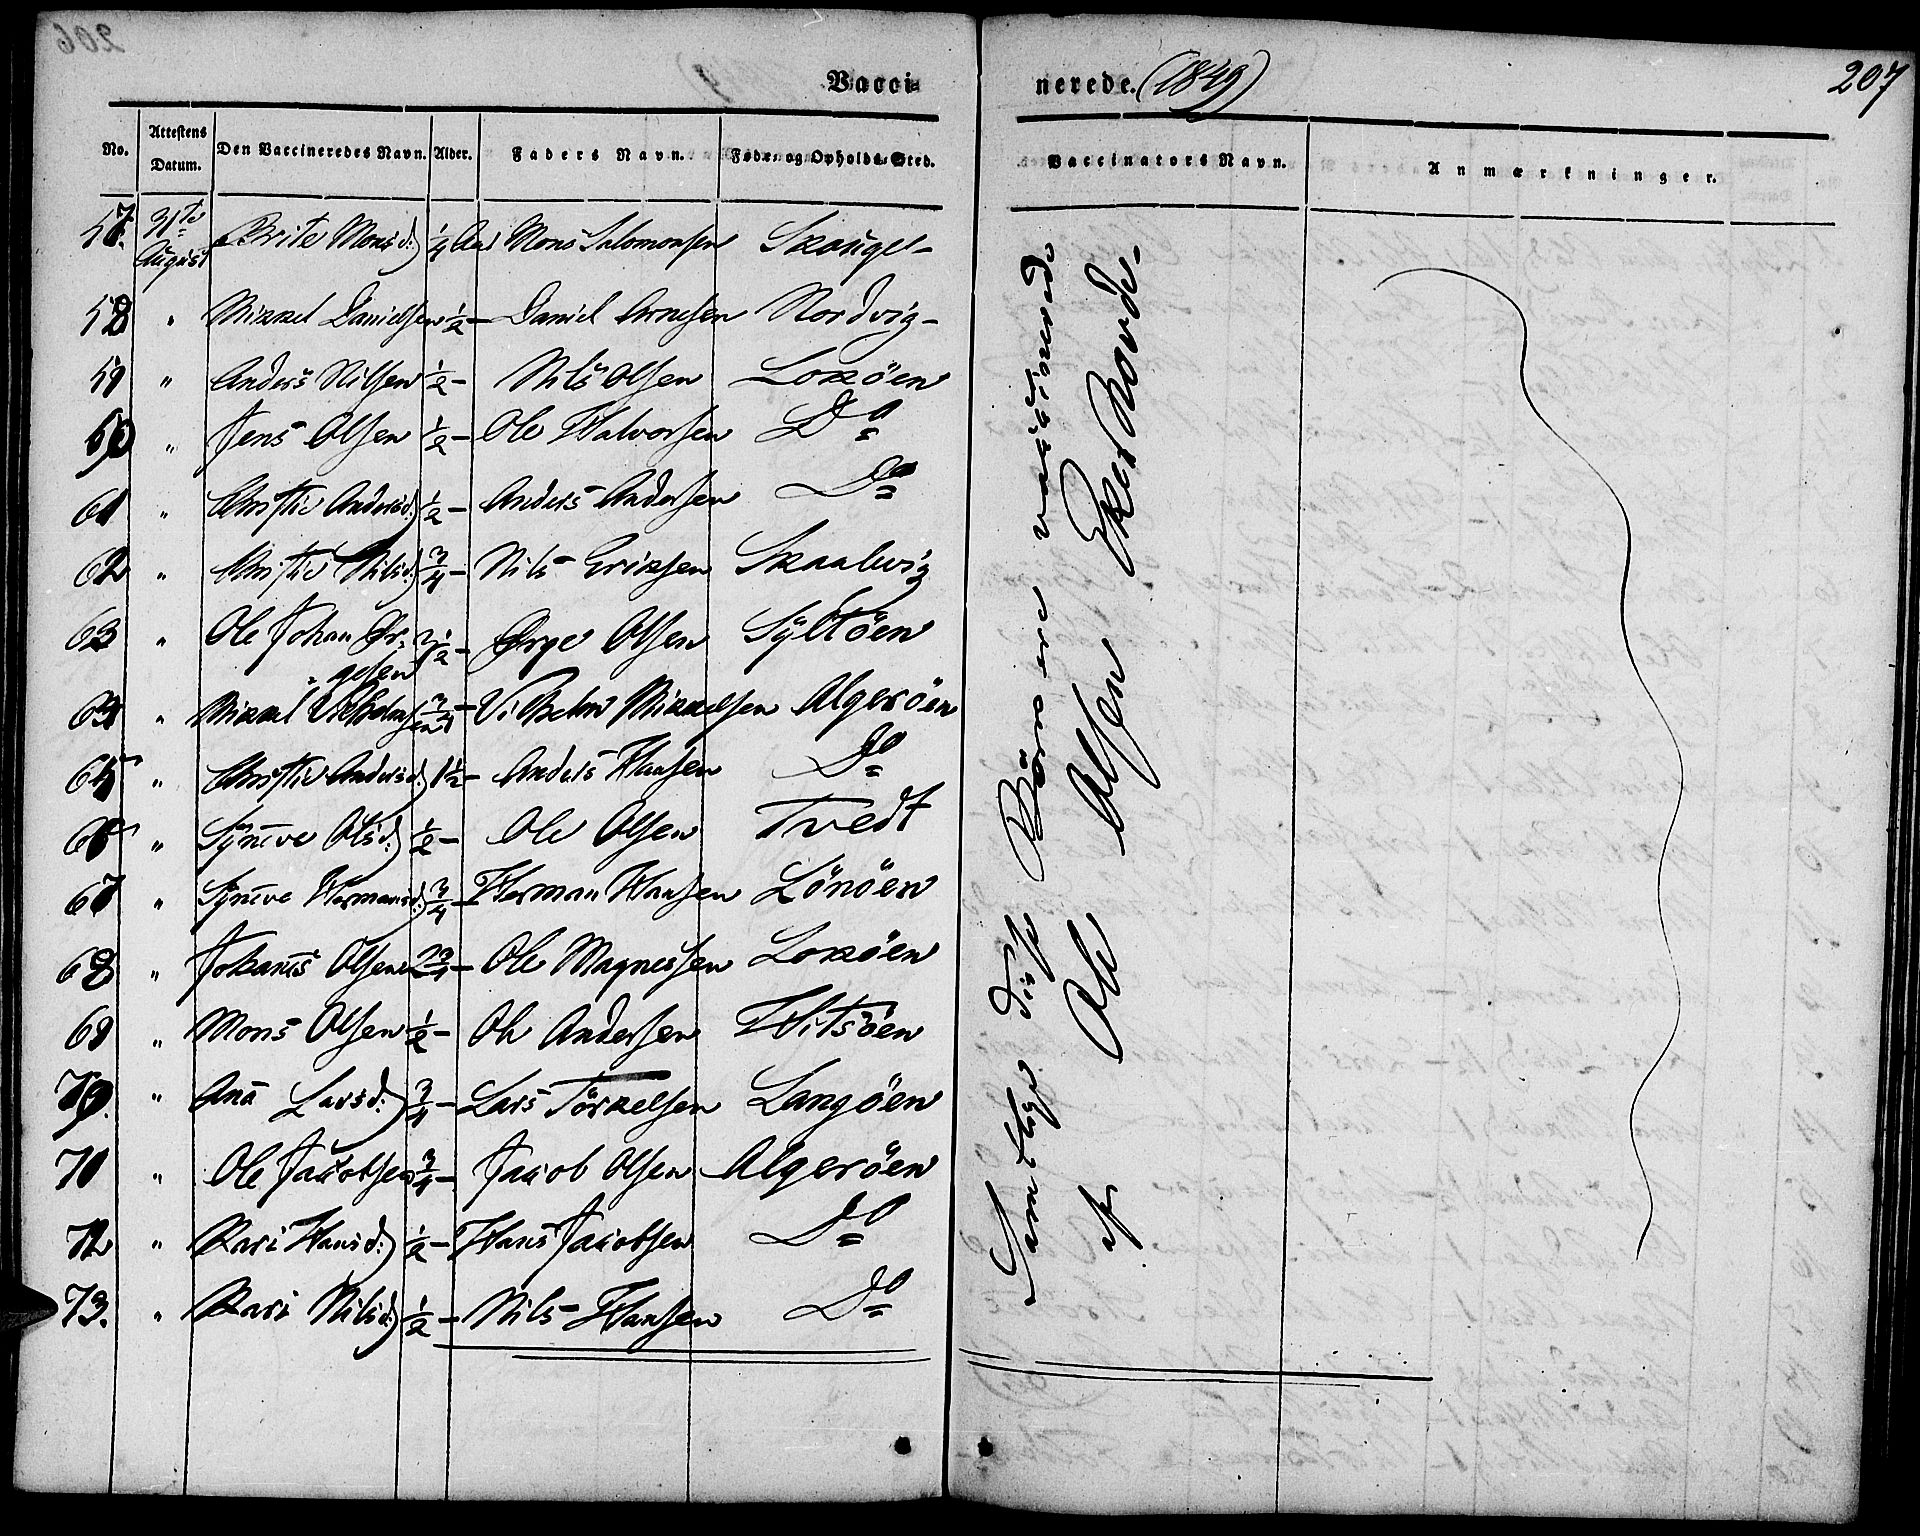 206
Vacci-
nerede. (1849)
207
No. Attestens Datum. Den Vaccineredes Navn. Alder. Faders Navn. Føde- og Opholds-Sted. Vaccinators Navn. Anmærkninger.
57. 31te August Brite Monsd:) 1/4 Aar Mons Salomonsen Skougel-
58 " Mikkel Danielsen 1/2 - Daniel Arnesen Nordvig-
59 " Anders Nilsen 1/2 - Nils Olsen Lokøen
60 " Jens Olsen 1/2 - Ole Halvorsen Do
61 " Christie Andersd:) 1/2 - Anders Andersen Do
62 " Christie Nilsd:) 3/4 - Nils Eriksen Skaalwig
63 " Ole Johan Ør- 1/2 - Ørge Olsen Syltöen
" gesen
64 " Mikkel Vilhelm 3/4 - Vilhelm Mikkelsen Algeröen
sen
65 " Christie Andersd:) 1 1/2 - Anders Hansen Do
66 " Synneve Olsd:) 1/2 - Ole Olsen Tvedt
67 " Synneve Hermansd:) 3/4 - Herman Hansen Lönöen
68 " Johannes Olsen 2 3/4 - Ole Magnessen Loköen
69 " Mons Olsen 1/2 - Ole Andersen Hitsöen
70. " Anna Larsd:) 3/4 - Lars Törkelsen Langöen
71 " Ole Jacobsen 3/4 - Jacob Olsen Algeröen
72 " Kari Hansd:) 1/2 - Hans Jacobsen Do
73. " Kari Nilsd:) 1/2 - Nils Hansen Do
Samtlige disse Börn ere vaccinerede
af Ole Olsen Ekerhovde-